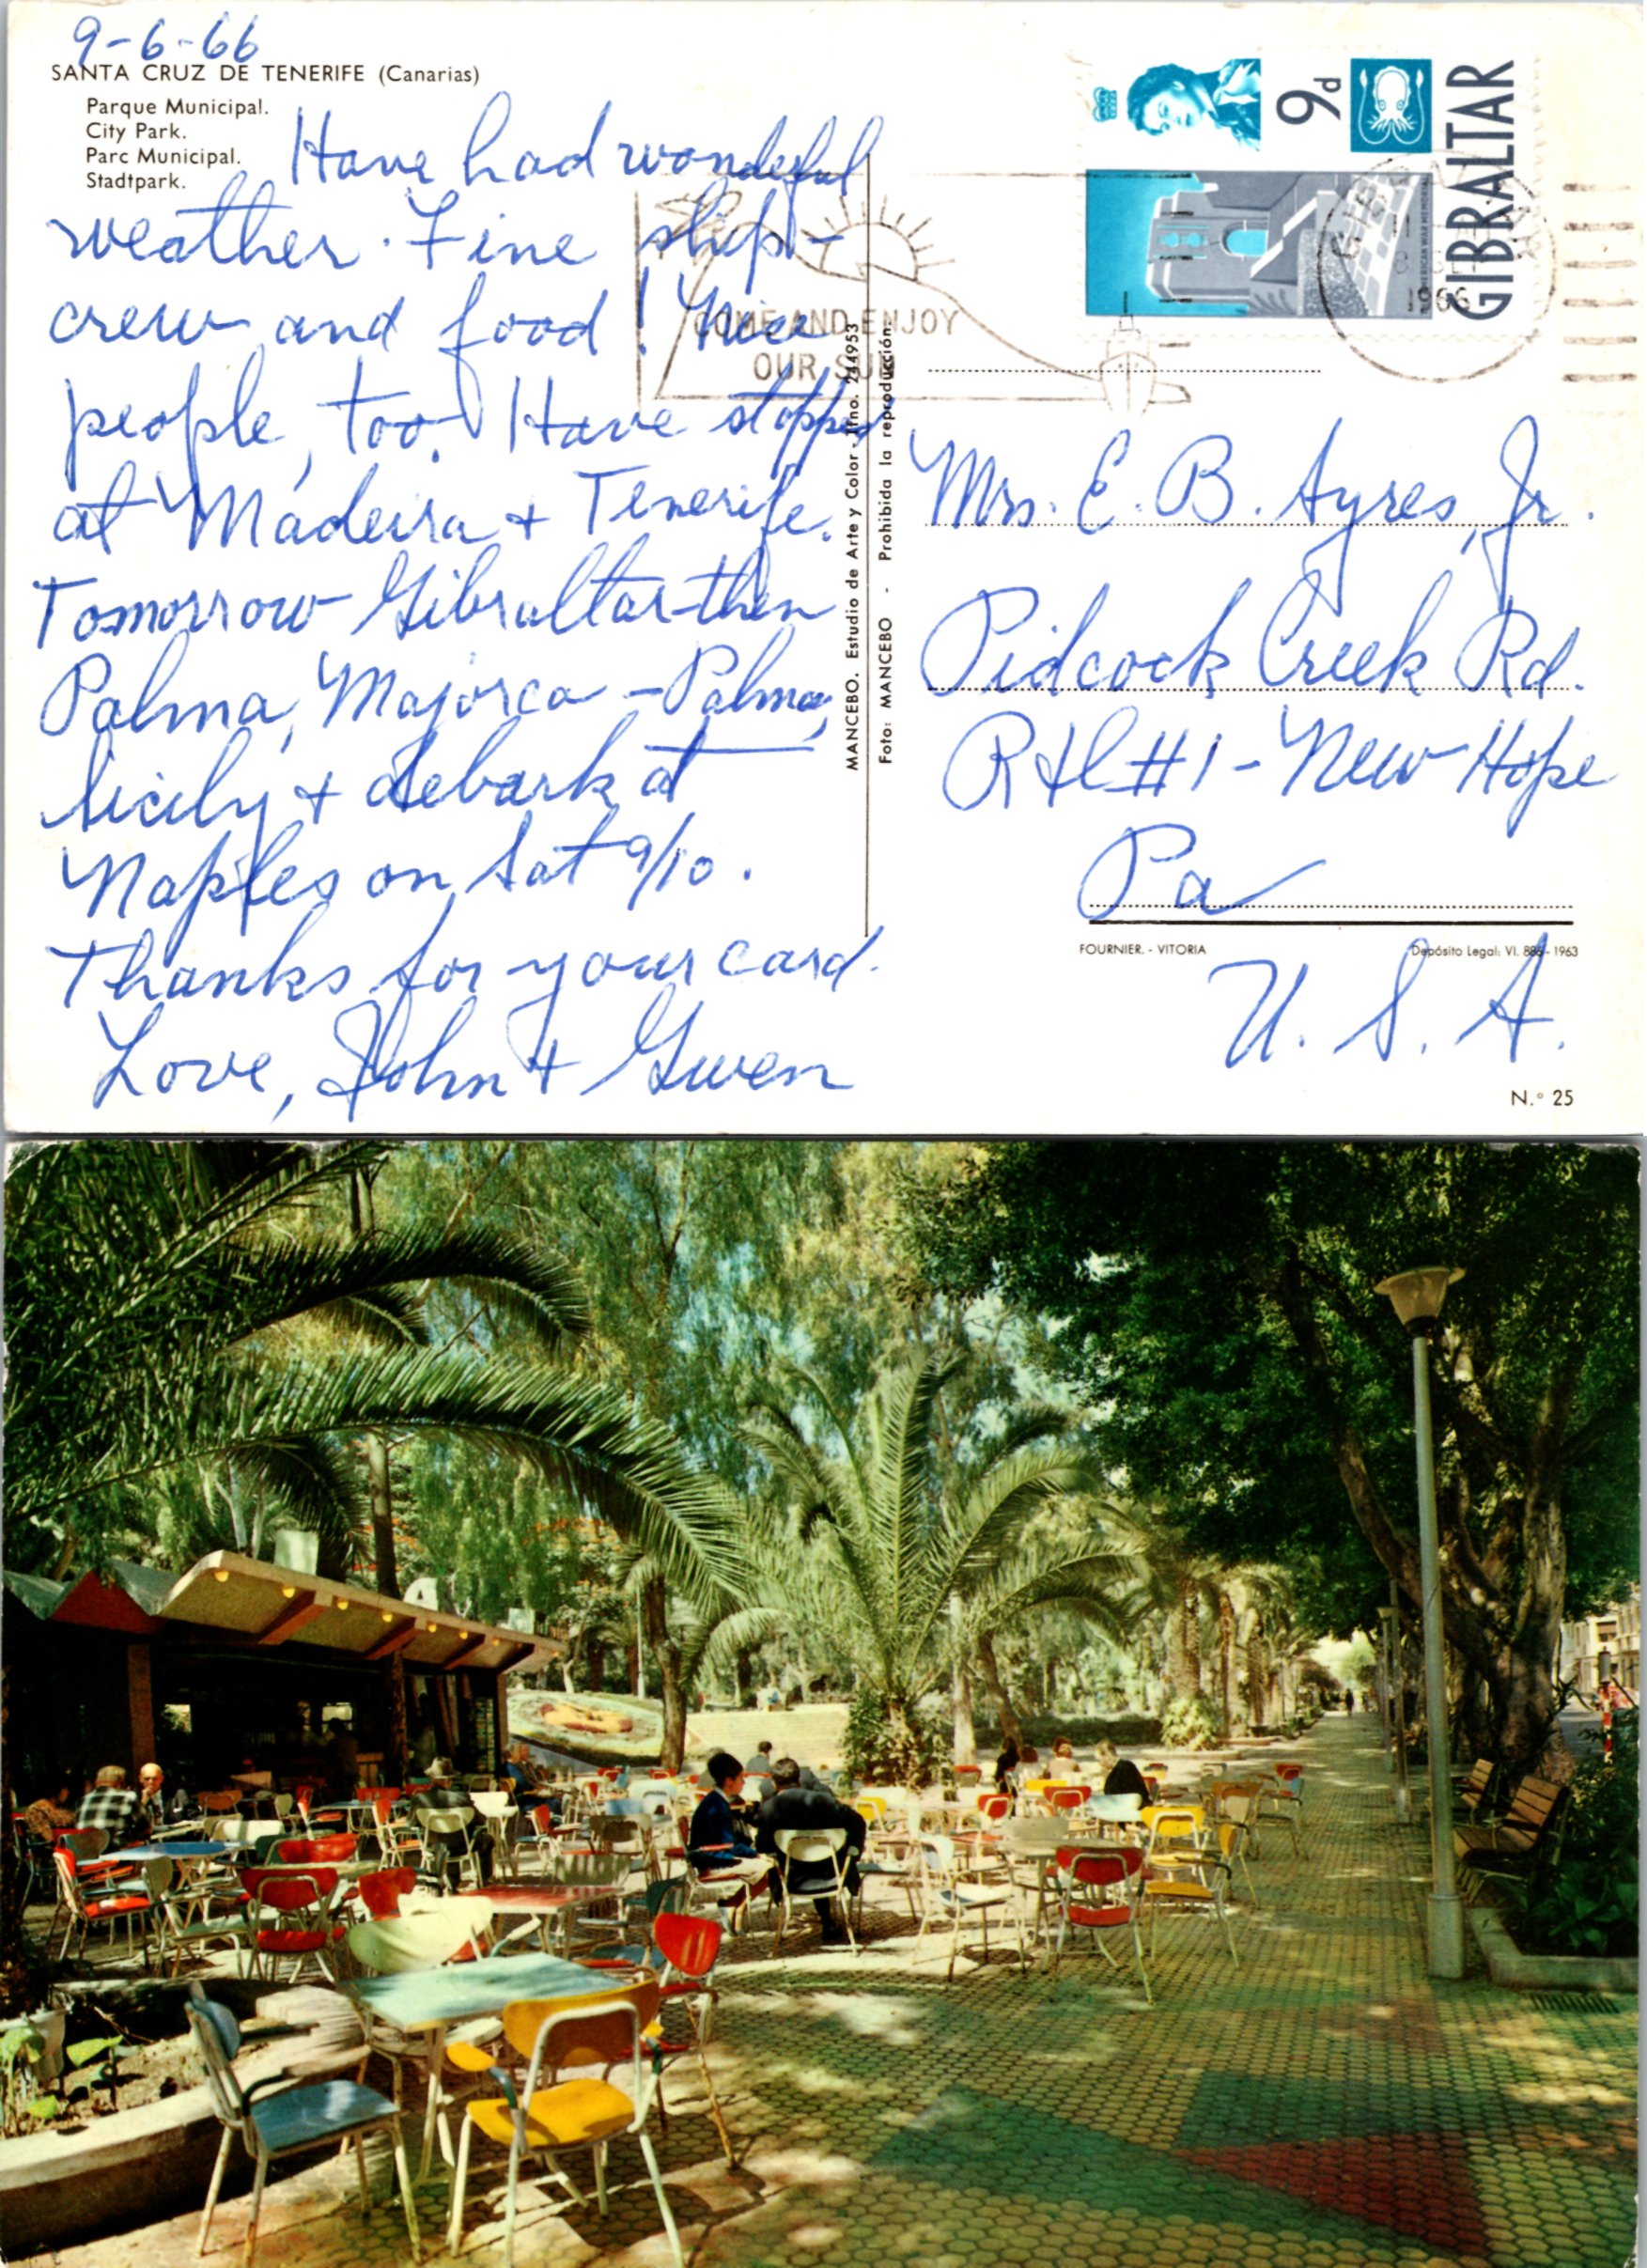 9-6-66
SANTA CRUZ DE TENERIFE (Canarias)
Parque Municipal.
City Park.
Parc Municipal.
Stadtpark.
Have had wonderful
weather. Fine ship-
crew and food! Nice
people, too. Have stopped
at Madeira + Tenerife.
Tomorrow Gibraltar-then
Palma, Majorca - Palma,
Sicily + debark at
Naples on Sat 9/10.
Thanks for your card.
Love, John + Gwen
MANCEBO. Estudio de Arte y Color - Tfno. 244953
Foto: MANCEBO - Prohibida la reproducción.
COME AND ENJOY
OUR SUN
9d
GIBRALTAR
AMERICAN WAR MEMORIAL
1966
Mrs. E. B. Ayres, Jr.
Pidcock Creek Rd.
#1 - New Hope
Pa
FOURNIER. - VITORIA
Depósito Legal: VI. - 1963
U. S. A.
N.° 25